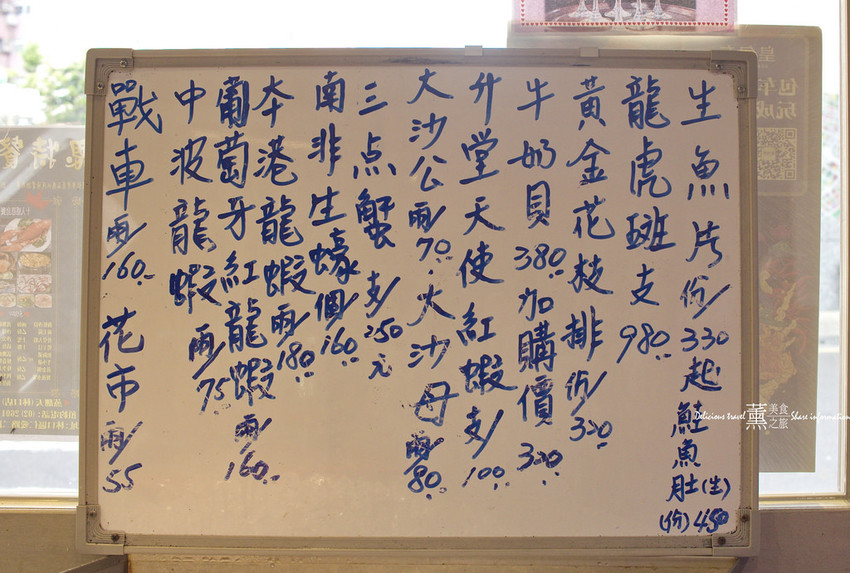 生魚片份/330起 鮭魚肚(生)(份)450
龍虎斑支980.
黃金花枝排份/320
牛奶貝380.加購價320
升堂天使紅蝦支/100.
大沙公兩/70.大沙母兩/80.
三点蟹支/250元
南非生蠔個/160.
本港龍蝦兩/180
葡萄牙紅龍蝦兩/160.
中波龍蝦兩/75.
戰車兩/160. 花市兩/55
Delicious travel 薰 美食之旅 Share information